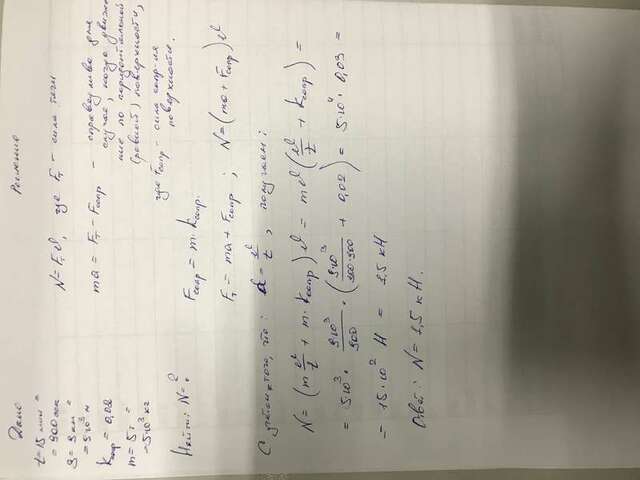 Дано
t = 15 мин =
= 900 сек
S = 9 км =
= 9·10³ м
kсопр = 0,02
m = 5 т =
= 5·10³ кг
Найти: N = ?
Решение
N = Fт υ, где Fт – сила тяги
ma = Fт – Fсопр – справедливо для
случая, когда движе-
ние по горизонтальной
(ровной) поверхности,
где Fсопр – сила сопр-ия
поверхности.
Fсопр = m · kсопр.
Fт = ma + Fсопр ; N = (ma + Fсопр) υ
С учётом того, что: a = υ/t, получаем:
N = (m υ/t + m · kсопр) υ = mυ (υ/t + kсопр) =
= 5·10³ · 9·10³/900 · (9·10³/900·900 + 0,02) = 5·10⁴ · 0,03 =
= 15·10² Н = 1,5 кН
Ответ: N = 1,5 кН.